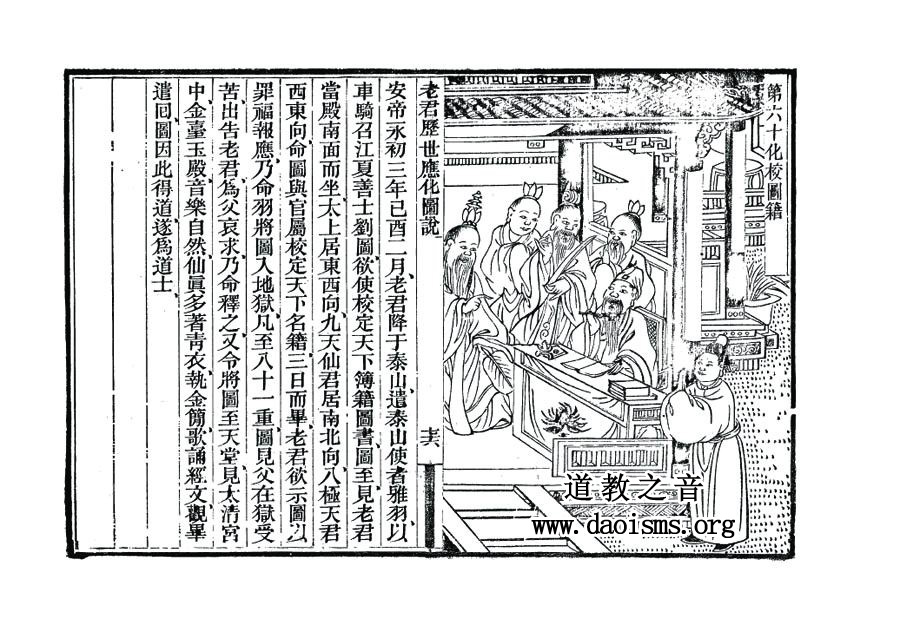 第六十化校圖籍
老君歷世應化圖說
安帝永初三年己酉二月老君降于泰山遣泰山使者雅羽以
車騎召江夏善士劉圖欲使校定天下簿籍圖書圖至見老君
當殿南面而坐太上居東西向九天仙君居南北向八極天君
西東向命圖與官屬校定天下名籍三日而畢老君欲示圖以
罪福報應乃命羽將圖入地獄凡至八十一重圖見父在獄受
苦出告老君為父哀求乃命釋之又令將圖至天堂見太清宮
中金臺玉殿音樂自然仙眞多著青衣執金簡歌誦經文觀畢
遣囘圖因此得道遂為道士
道教之音
www.daoisms.org